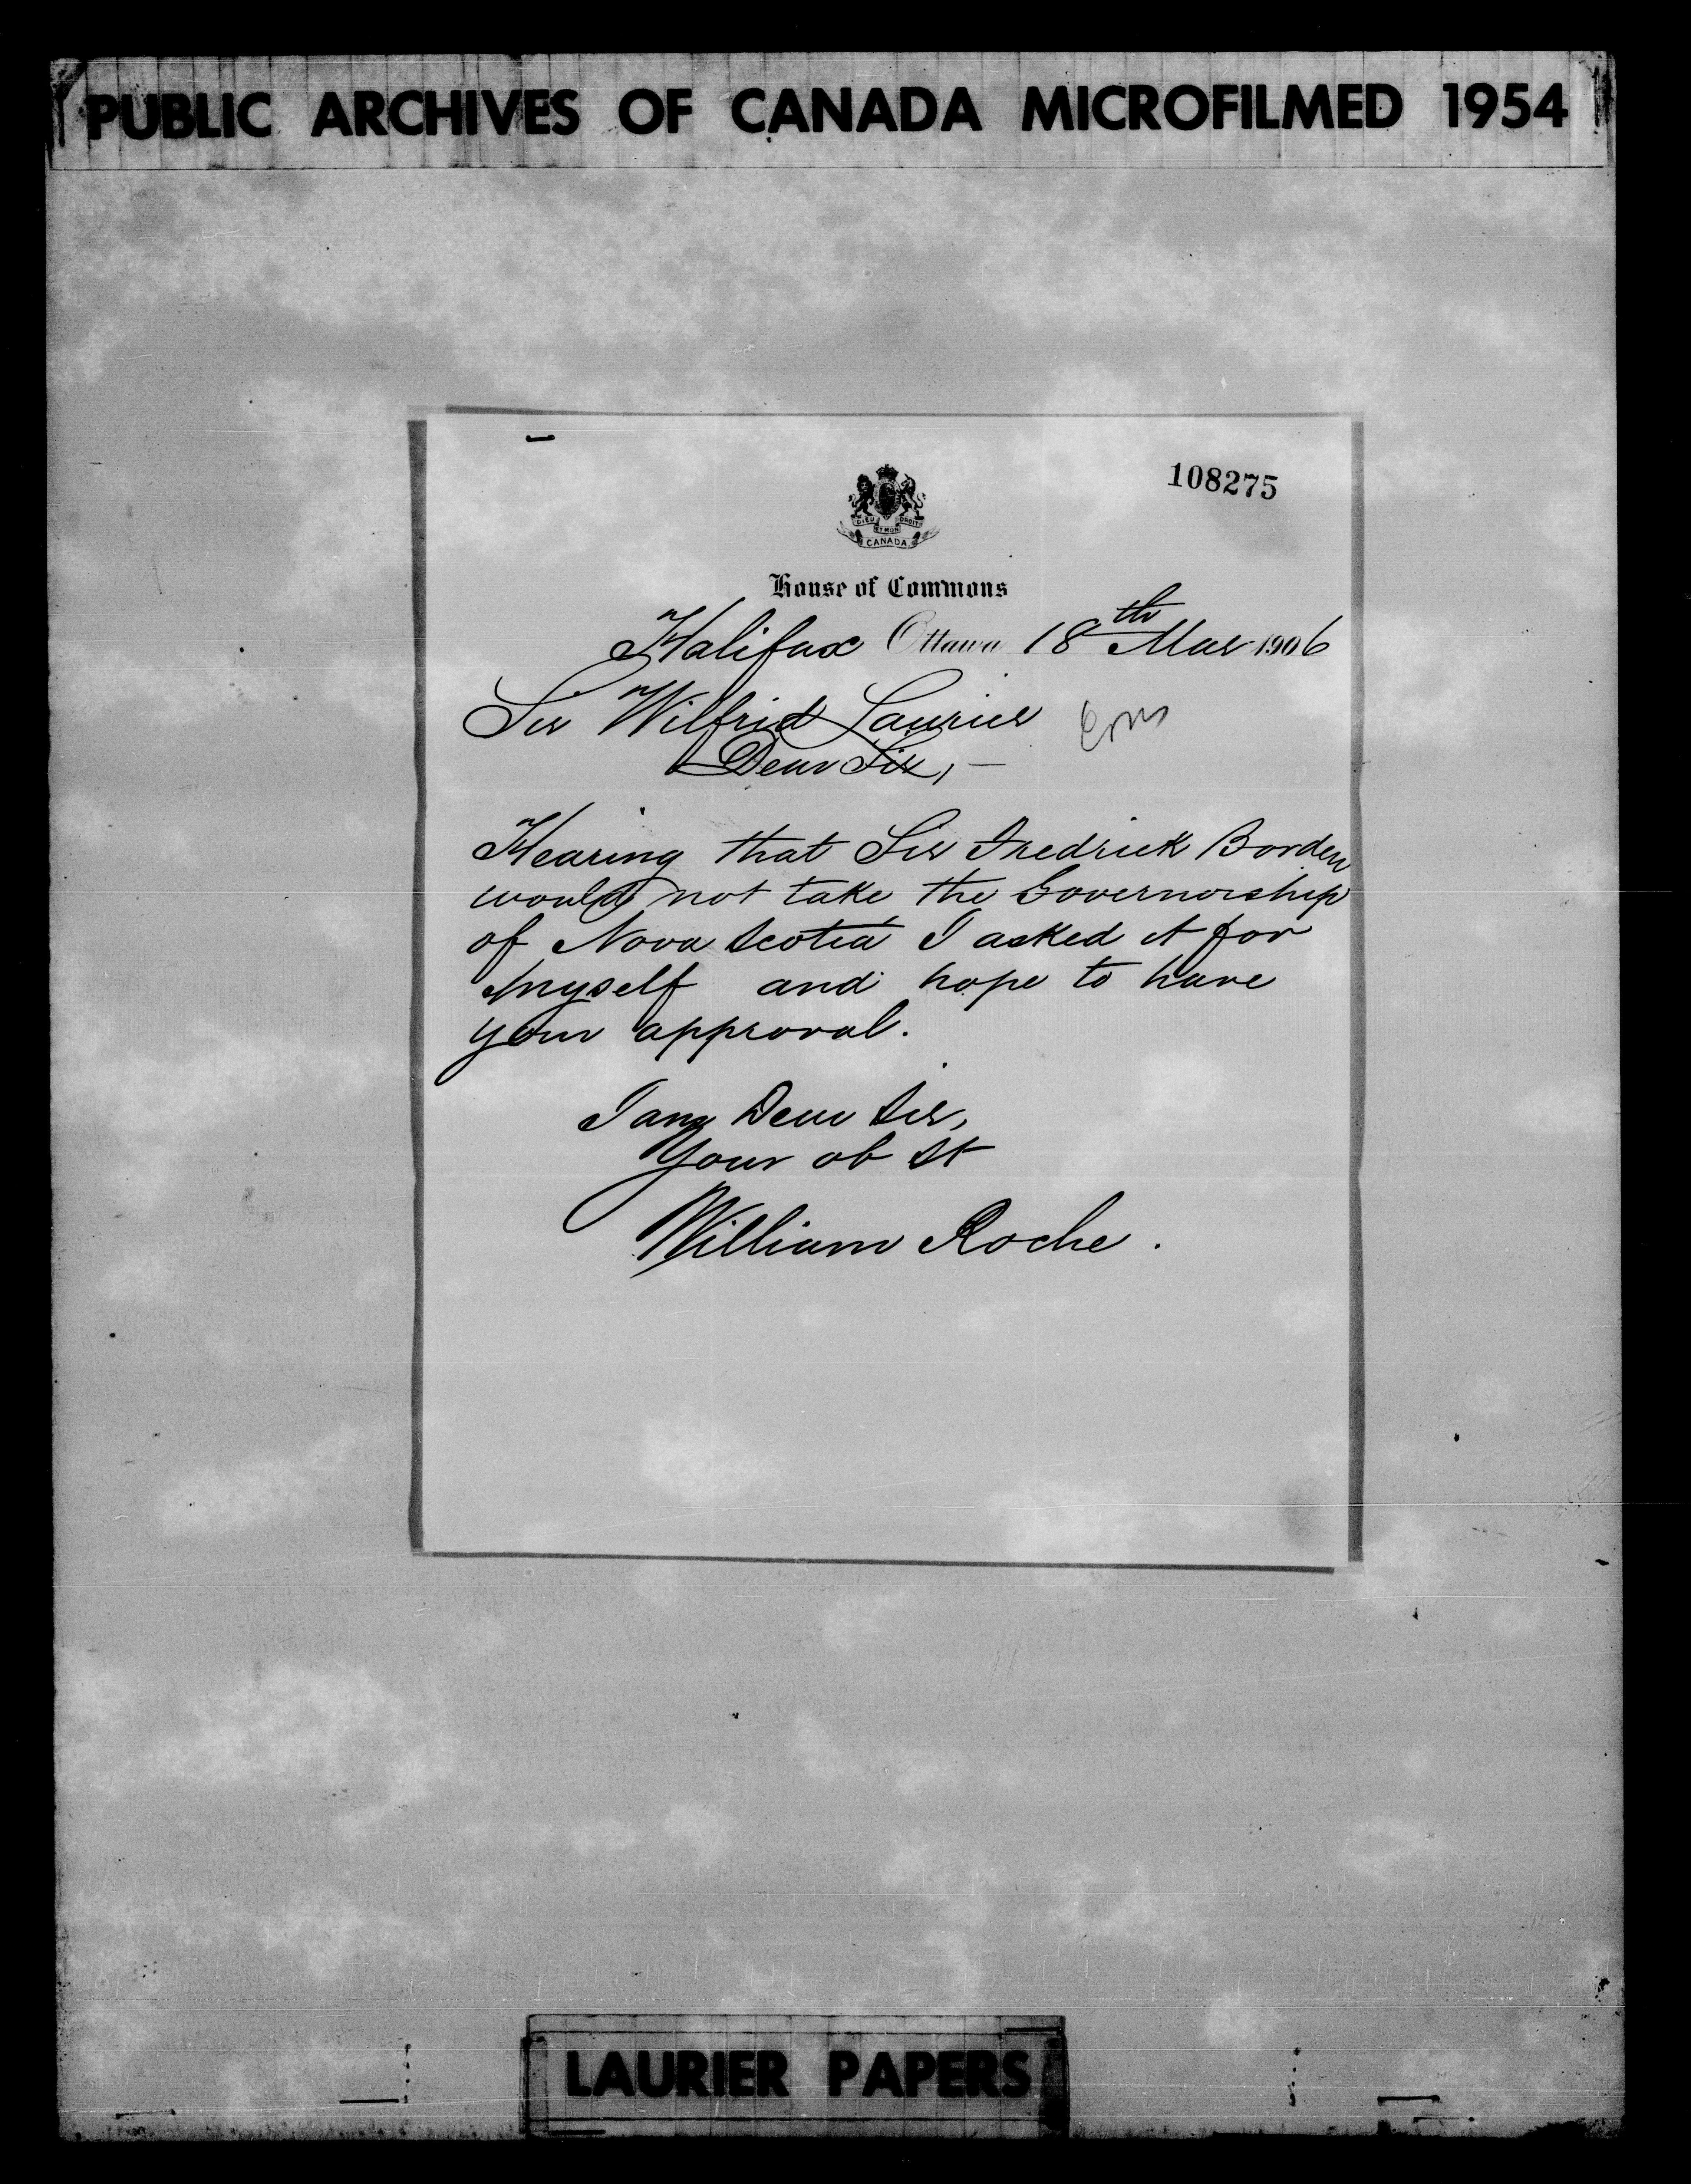 PUBLIC ARCHIVES OF CANADA MICROFILMED 1954
108275
DIEU ET MON DROIT
CANADA
House of Commons
Halifax Ottawa 18th Mar 1906
Sir Wilfrid Laurier
Dear Sir, —
Hearing that Sir Fredrick Borden
would not take the Governorship
of Nova Scotia I asked it for
myself and hope to have
your approval.
I am Dear Sir,
Your ob St
William Roche.
LAURIER PAPERS